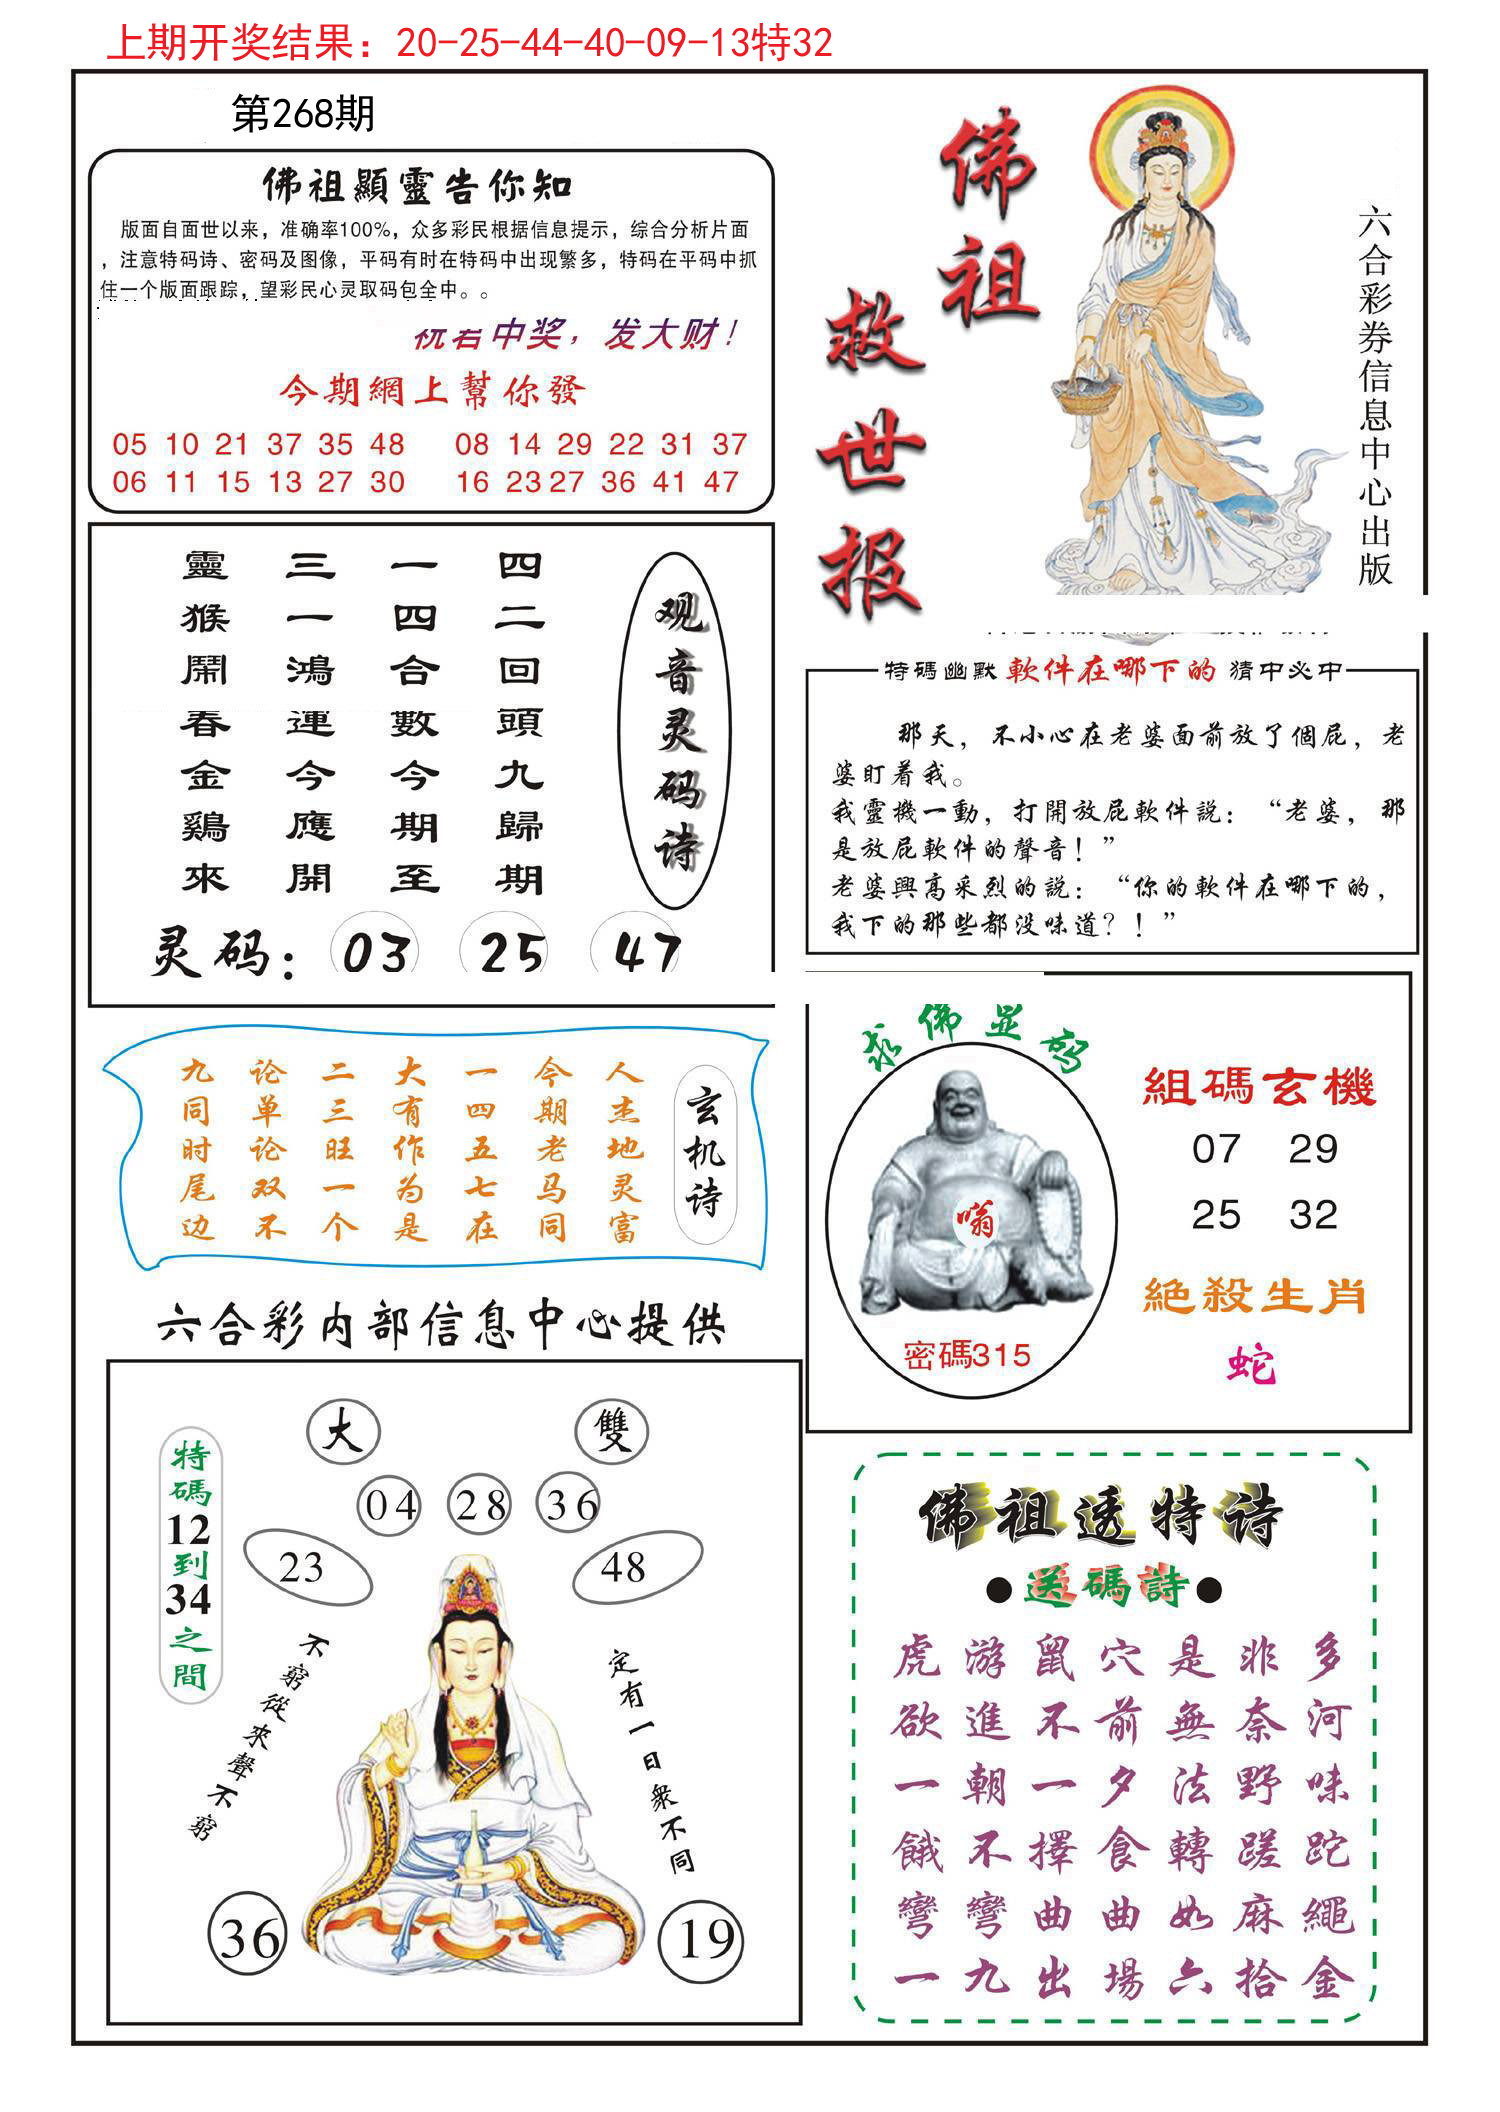 上期开奖结果：20-25-44-40-09-13特32
第268期
佛祖顯靈告你知
版面自面世以来，准确率100%，众多彩民根据信息提示，综合分析片面
，注意特码诗、密码及图像，平码有时在特码中出现繁多，特码在平码中抓
住一个版面跟踪，望彩民心灵取码包全中。。
祝君中奖，发大财！
今期網上幫你發
05 10 21 37 35 48 08 14 29 22 31 37
06 11 15 13 27 30 16 23 27 36 41 47
佛祖
救世报
六合彩券信息中心出版
观音灵码诗
四二回頭九歸期
一四合數今期至
三一鴻運今應開
靈猴鬧春金鷄來
灵码：03 25 47
特碼幽默 軟件在哪下的 猜中必中
那天，不小心在老婆面前放了個屁，老
婆盯着我。
我靈機一動，打開放屁軟件説：“老婆，那
是放屁軟件的聲音！”
老婆興高采烈的説：“你的軟件在哪下的，
我下的那些都没味道？！”
玄机诗
人杰地灵富
今期老马同
一四五七在
大有作为是
二三旺一个
论单论双不
九同时尾边
求佛显码
嗡
密碼315
組碼玄機
07 29
25 32
絕殺生肖
蛇
六合彩内部信息中心提供
大 雙
04 28 36
23 48
特碼12到34之間
不窮從來聲不窮
定有一日衆不同
36 19
佛祖透特诗
●送碼詩●
虎游鼠穴是非多
欲進不前無奈河
一朝一夕法野味
餓不擇食轉蹉跎
彎彎曲曲如麻繩
一九出場六拾金